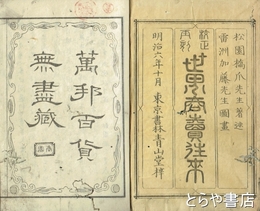 松園橋爪先生著述
雪洲加藤先生図畫
改正
再刻
世界商賣往来
明治六年十月 東京書林青山堂梓
萬邦百貨
無盡藏
とらや書店